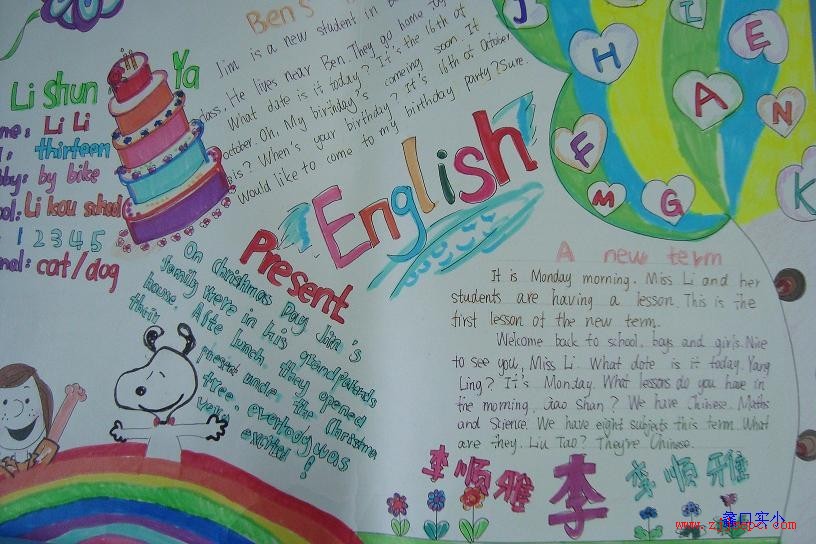 Ben's
Jim is a new student in
class. He lives near Ben. They go home
What date is it today? It's the 16th of
October. Oh, My birthday's comeing soon. It
is? When's your birthday? It's 16th of October.
Would like to come to my birthday party? Sure.
Li shun Ya
me: Li Li
thirteen
bby: by bike
ool: Li kou school
1 2 3 4 5
mal: cat/dog
English
Present
On Christmas Day Jim's
family were in his grandparents
house. Afte lunch. they opened
their present unde. the Christma
tree. everybody was
very excited!
J
H
I
E
A
N
F
M
G
K
A new term
It is Monday morning. Miss Li and her
students are having a lesson. This is the
first lesson of the new term.
Welcome back to school, boys and girls. Nice
to see you, Miss Li. What date is it today. Yang
Ling? It's Monday. What lessons do you have in
the morning, Gao Shan? We have Chinese. Maths
and Science. We have eight subjects this term. What
are they. Liu Tao? They're Chinese.
李顺雅 李 李顺雅
蠡口实小